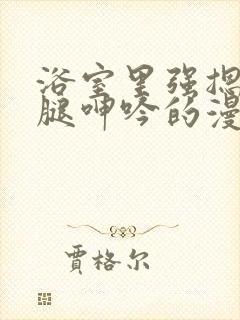 浴室里强掴
腿呻吟的漫
賈格尔